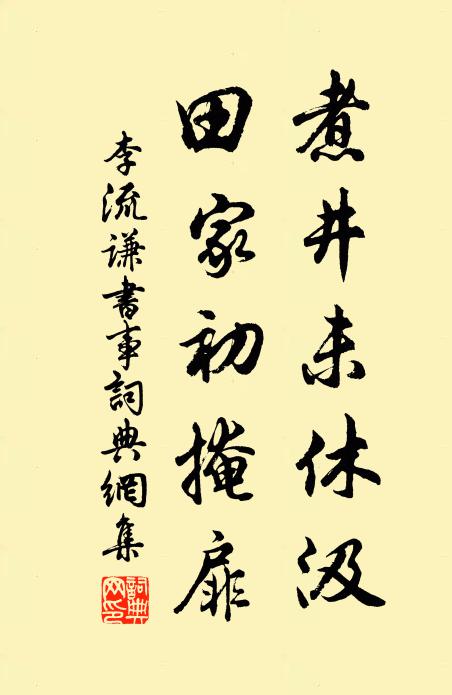 煮井未休汲
田家初掩扉
李流谦書事詞典網集